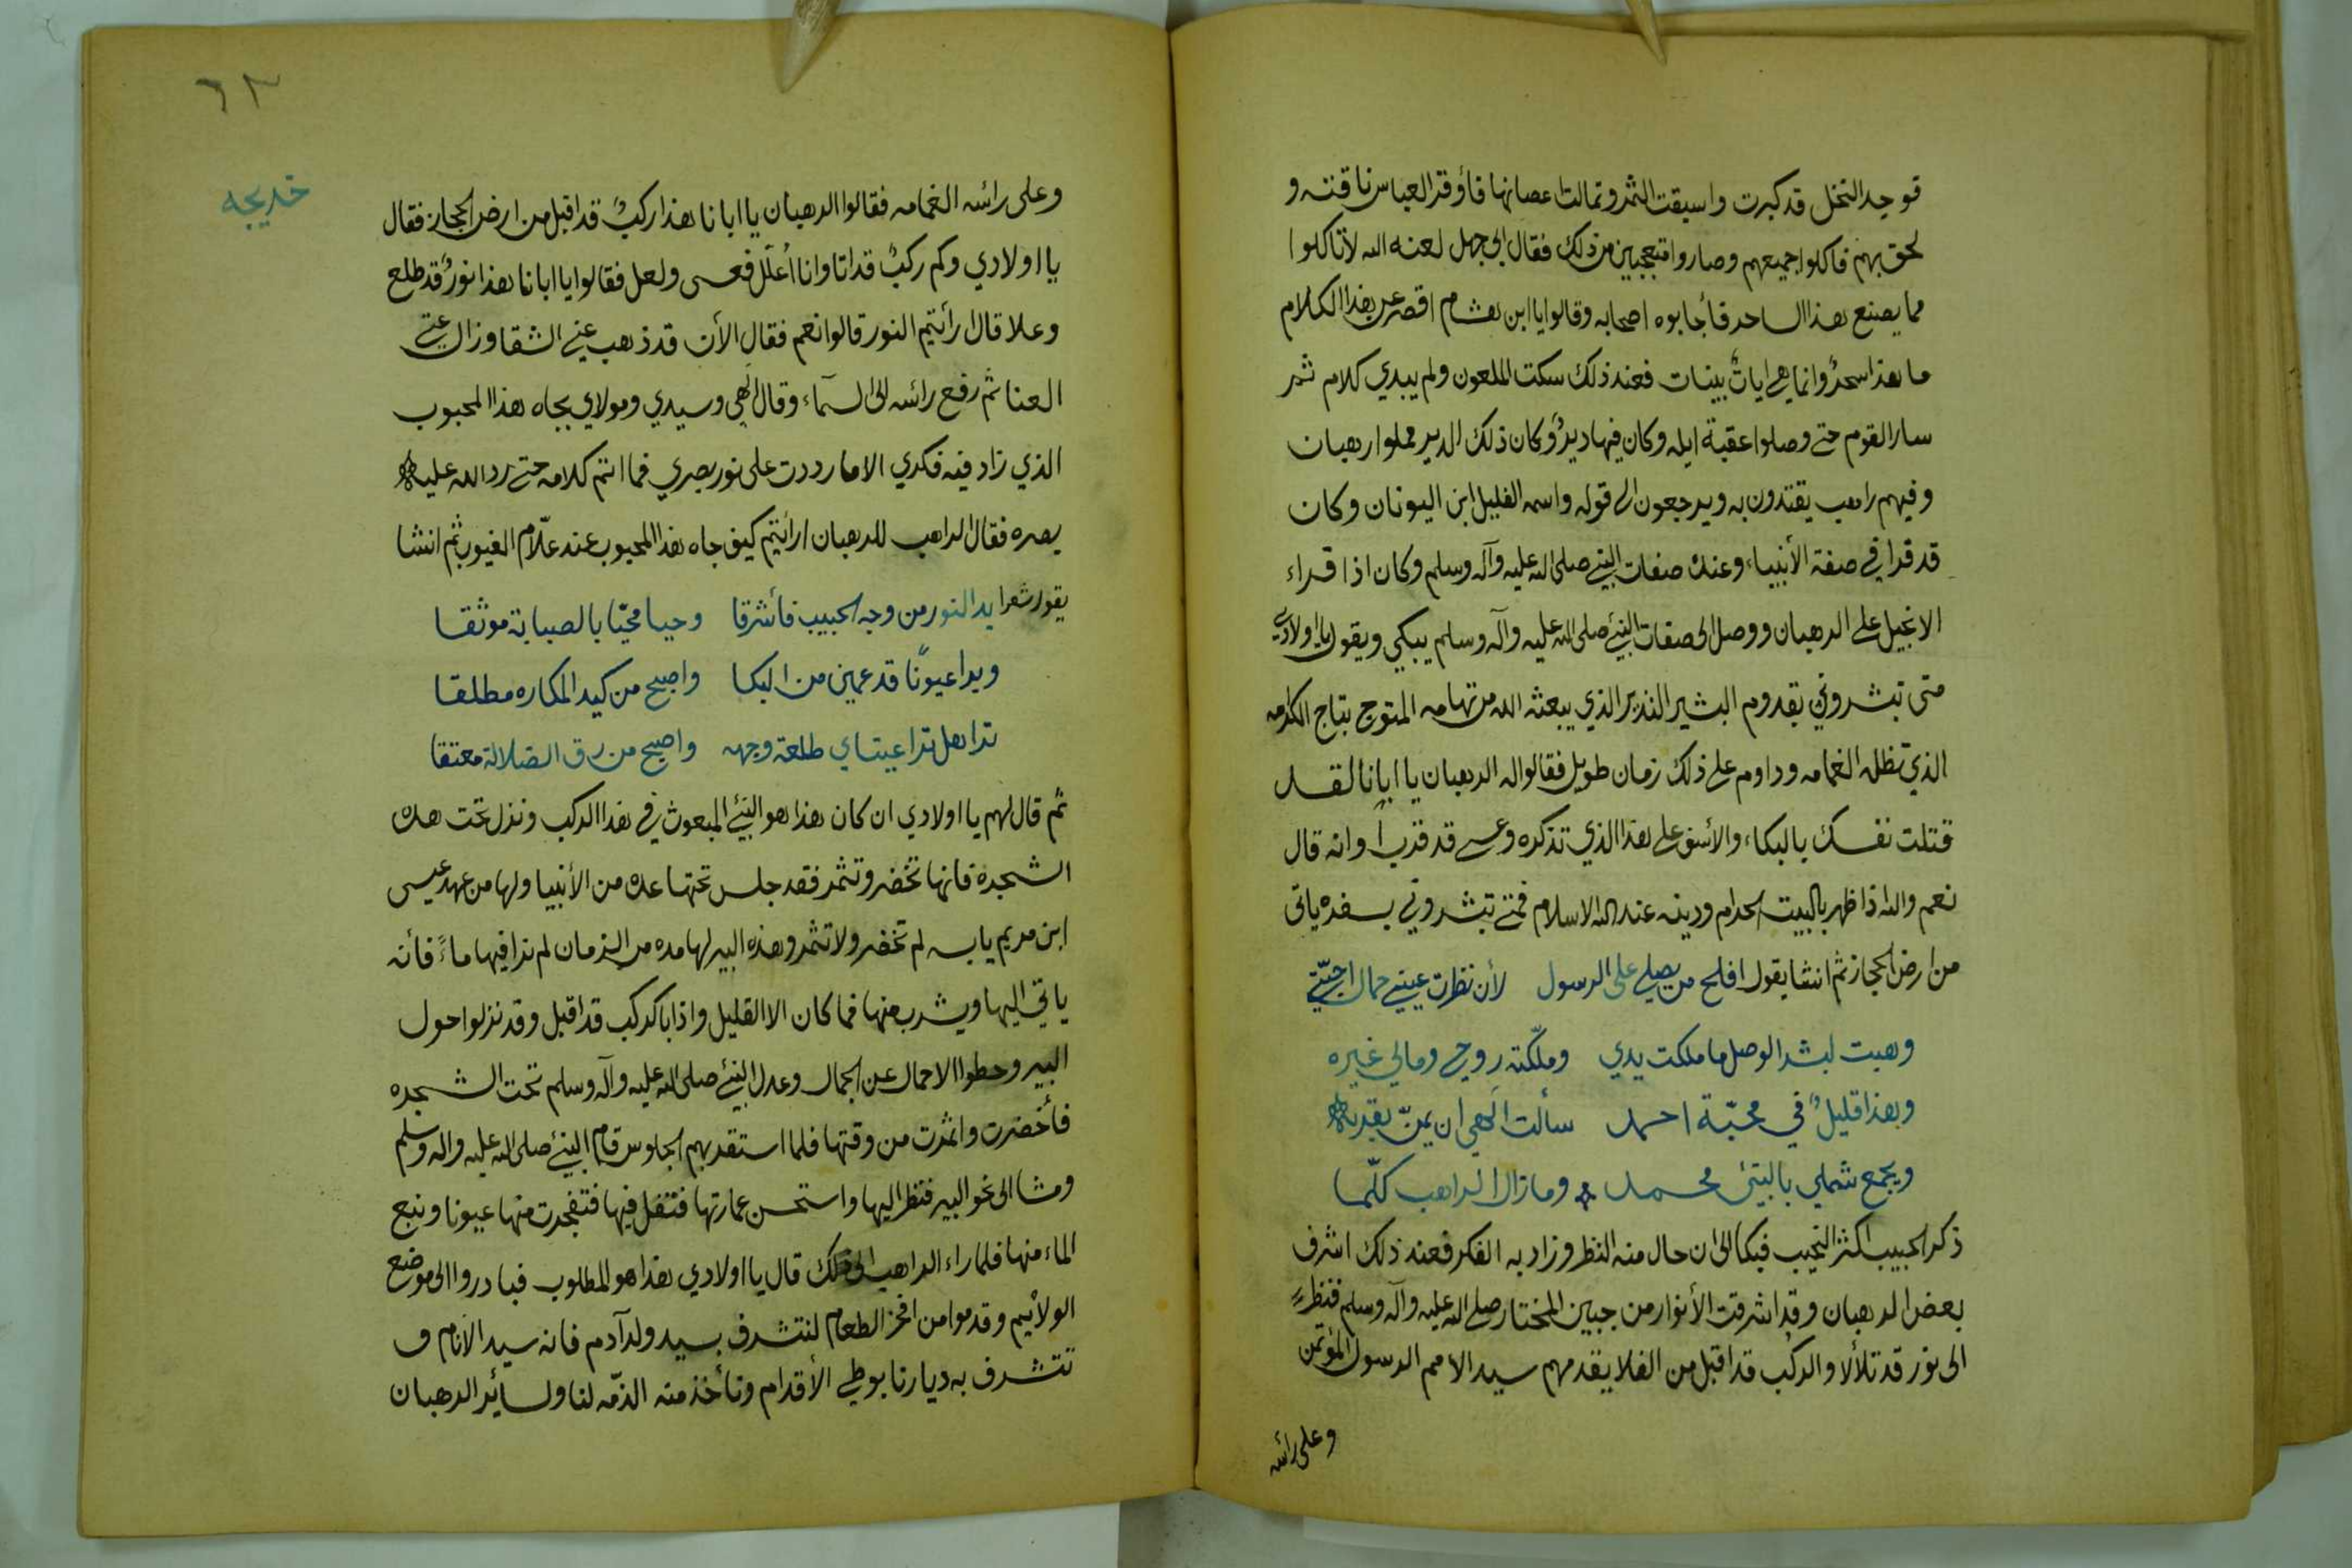 فوجد النخل قد كبرت واسبقت الثمر وتمالت اعصانها فأوقد العباس ناقته و
لحق بهم فاكلوا جميعهم وصاروا متعجبين من ذلك فقال ابي جهل لعنه الله لا تاكلوا
مما يصنع هذا الساحر فأجابوه اصحابه وقالوا يا ابن هشام اقصر عن هذا الكلام
ما هذا سحرٌ وانما هي اياتٌ بينات فعند ذلك سكت الملعون ولم يبدي كلام ثم
سار القوم حتى وصلوا عقبة ايله وكان فيها ديرٌ وكان ذلك الدير مملوا رهبان
وفيهم راهب يقتدون به ويرجعون الى قوله واسمه الفليل ابن اليونان وكان
قد قرا في صفة الأنبياء وعنده صفات النبي صلى الله عليه وآله وسلم وكان اذا قراء
الانجيل على الرهبان ووصل الى صفات النبي صلى الله عليه وآله وسلم يبكي ويقول يا اولادي
متى تبشروني بقدوم البشير النذير الذي يبعثه الله من تهامه المتوج بتاج الكرامه
الذي تظله الغمامه وداوم على ذلك زمان طويل فقالوا له الرهبان يا ابانا لقد
قتلت نفسك بالبكاء والأسف على هذا الذي تذكره وعسى قد قرب اوانه قال
نعم والله اذا ظهر بالبيت الحرام ودينه عند الله الاسلام فمتى تبشروني بسفره ياتى
من ارض الحجاز ثم انشا يقول افلح من يصلي على الرسول لأن نظرت عيني جمال احبّتي
وهبت لبشر الوصل ما ملكت يدي وملّكته روحي ومالي غيره
وهذا قليلٌ في محبّة احمد سألت الهي ان يمنّ بقربه
ويجمع شملي بالنبي محمد وما زال الراهب كلّما
ذكر الحبيب اكثر النحيب فبكا الى ان حال منه النظر وزاد به الفكر فعند ذلك اشرف
بعض الرهبان وقد اشرقت الأنوار من جبين المختار صلى الله عليه وآله وسلم فنظر
الى نور قد تلألا والركب قد اقبل من الفلا يقدمهم سيد الامم الرسول المؤتمن
وعلى رأسه
٦٣
خديجه
وعلى رائسه الغمامه فقالوا الرهبان يا ابانا هذا ركبٌ قد اقبل من ارض الحجاز فقال
يا اولادي وكم ركبٌ قد اتا وانا اُعلّل فعسى ولعل فقالوا يا ابانا هذا نورٌ قد طلع
وعلا قال ارأيتم النور قالوا نعم فقال الأن قد ذهب عني الشقا وزال عنّي
العنا ثم رفع رائسه الى السمآء وقال الهي وسيدي ومولاي بجاه هذا المحبوب
الذي زاد فيه فكري الا ما رددت على نور بصري فما اتم كلامه حتى رد الله عليه
بصره فقال الراهب للرهبان ارائيتم كيف جاه هذا المحبوب عند علّام الغيوب ثم انشا
يقول شعرا بدا النور من وجه الحبيب فأشرقا وحيا محبّا بالصبابة موثقا
وبرا عيونًا قد عمين من البكا واصبح من كيد المكاره مطلقا
ترا هل ترا عيناي طلعة وجهه واصبح من رق الضلالة معتقا
ثم قال لهم يا اولادي ان كان هذا هو النبي المبعوث في هذا الركب ونزل تحت هذه
الشجره فانها تخضر وتثمر فقد جلس تحتها عده من الأنبيا ولها من عهد عيسى
ابن مريم يابسه لم تخضر ولا تثمر وهذه البير لها مده من الزمان لم نرا فيها ماءً فأنه
ياتي اليها ويشرب منها فما كان الا القليل واذا بالركب قد اقبل وقد نزلوا حول
البير وحطوا الاحمال عن الجمال وعدل النبي صلى الله عليه وآله وسلم تحت الشجره
فأخضرت واثمرت من وقتها فلما استقر بهم الجلوس قام النبي صلى الله عليه واله وسلم
ومشا الى نحو البير فنظر اليها واستحسن عمارتها فتفل فيها فتفجرت منها عيونا ونبع
الماء منها فلما راء الراهب الى ذلك قال يا اولادي هذا هو المطلوب فبادروا الى موضع
الولائيم وقدموا من افخر الطعام لنتشرف بسيد ولد آدم فانه سيد الانام و
تتشرف به ديارنا بوطي الأقدام ونأخذ منه الذمّه لنا ولسائر الرهبان